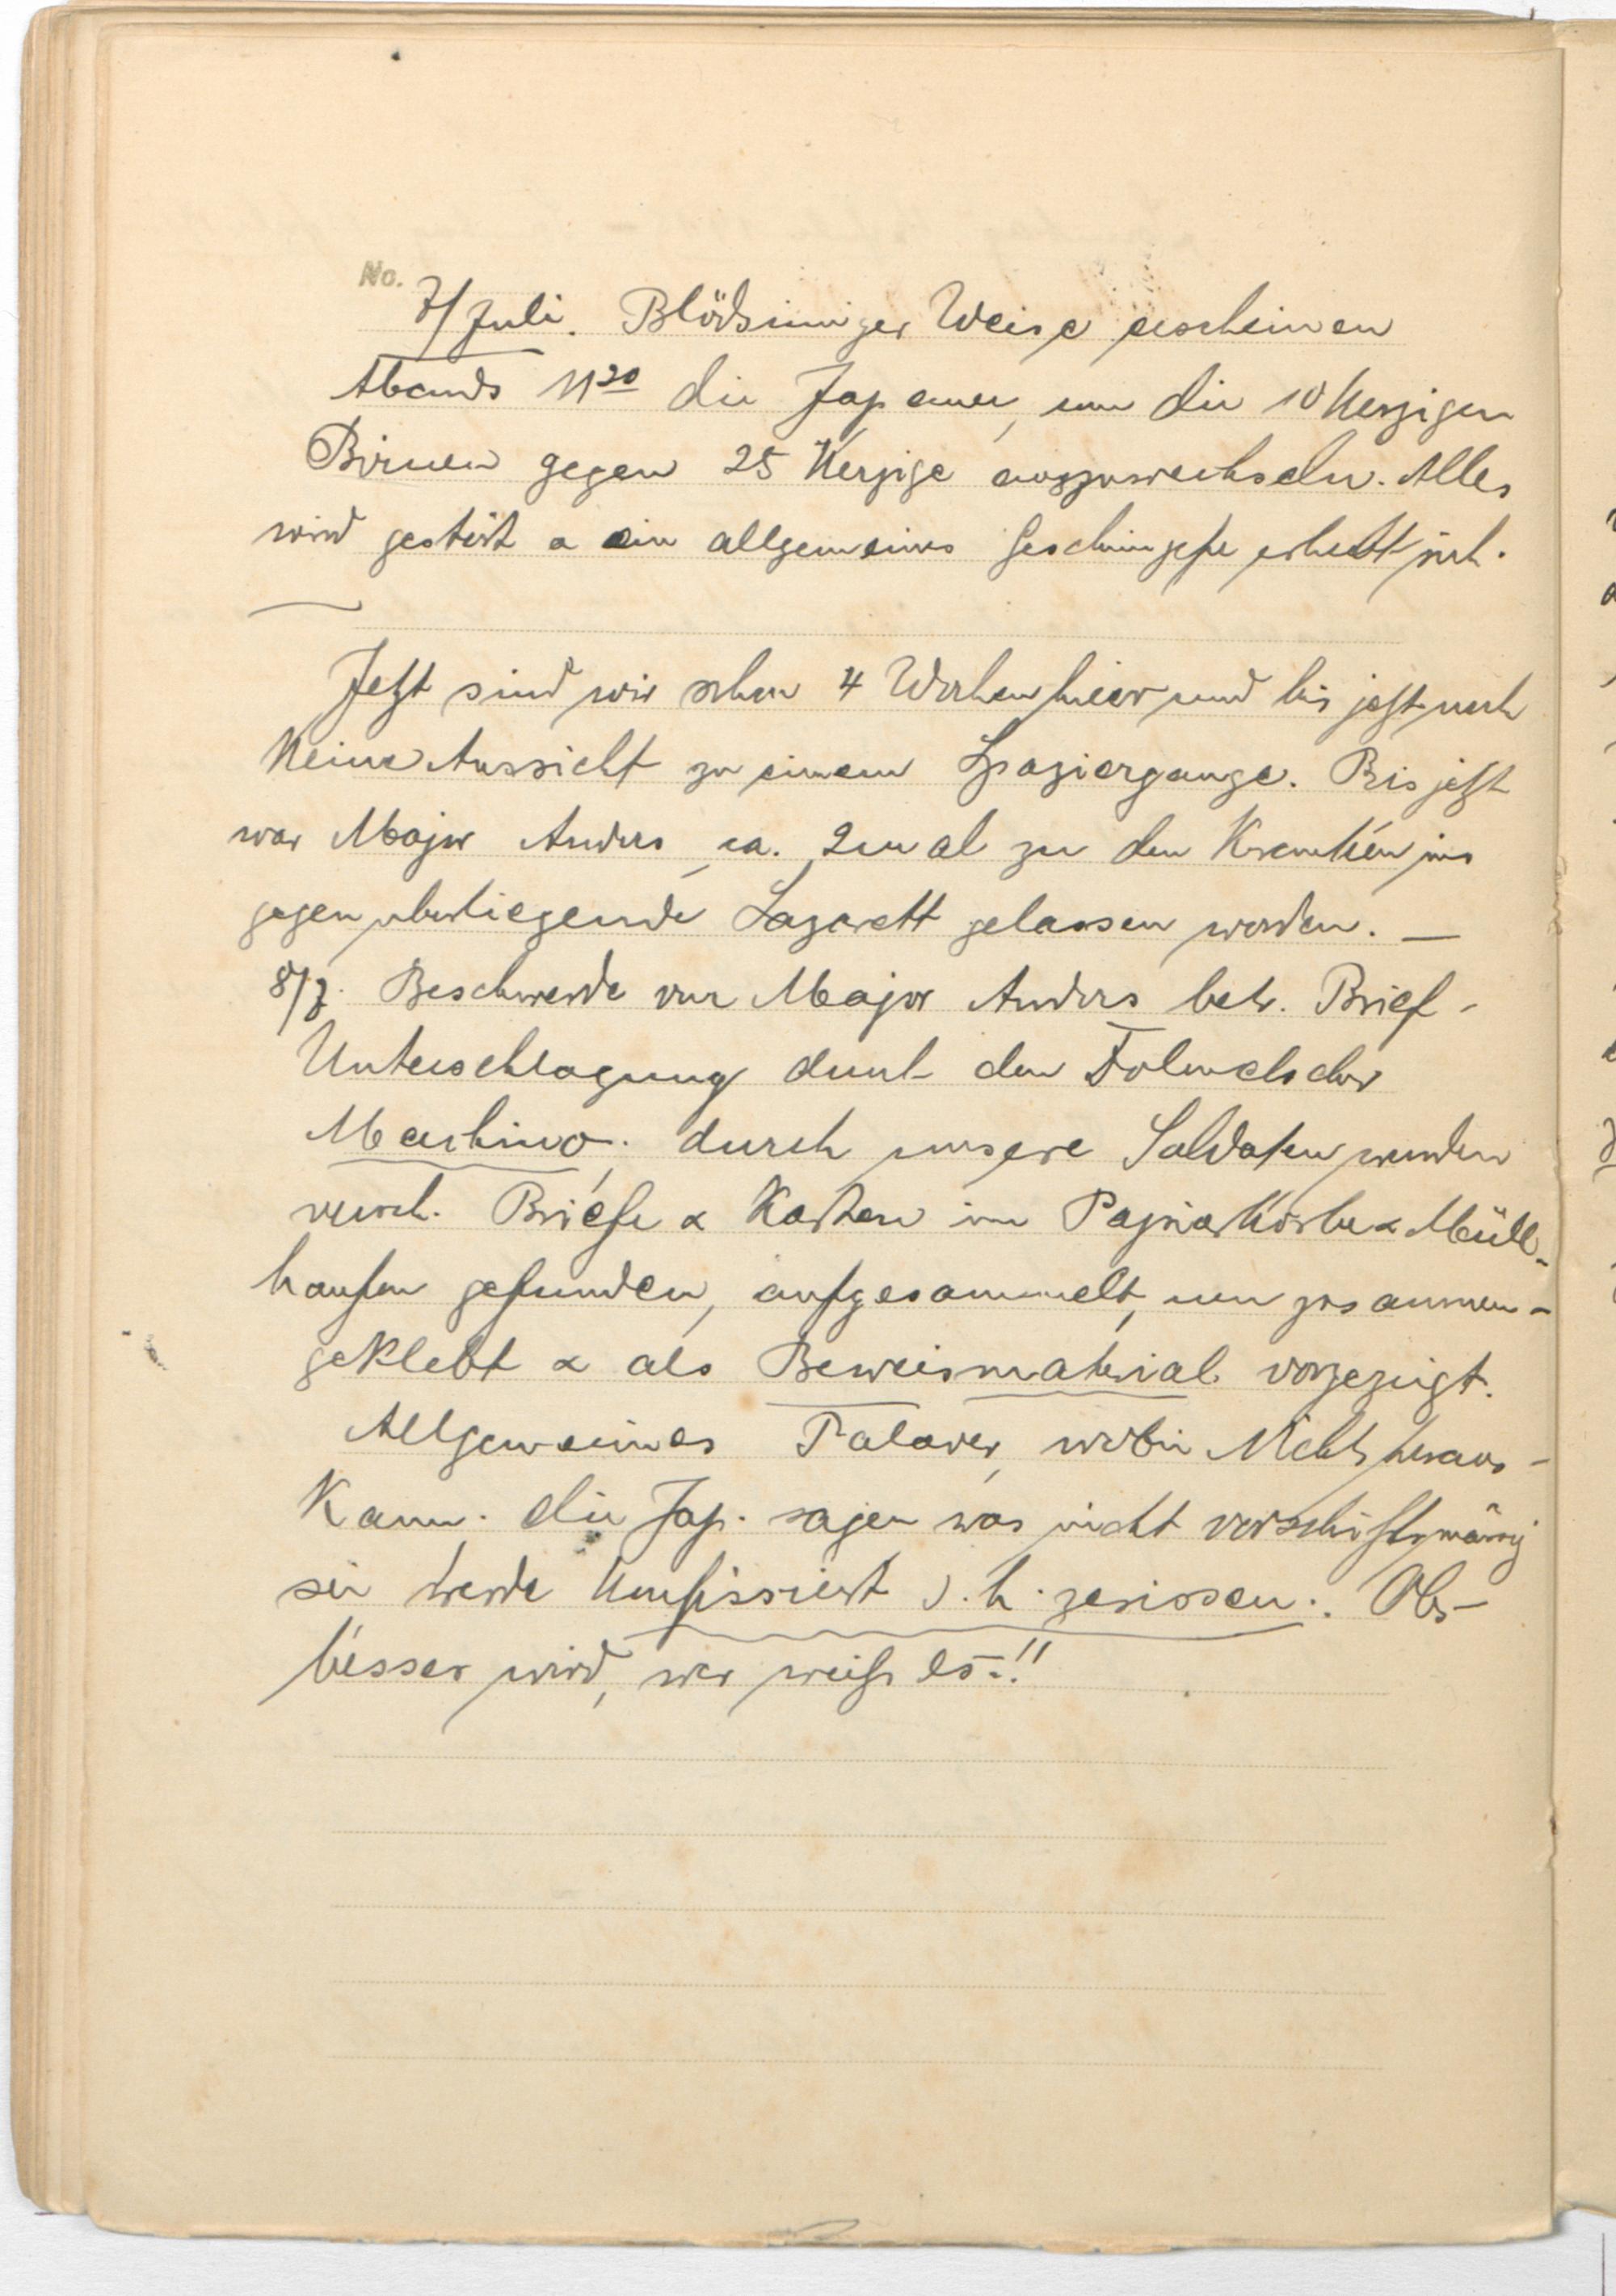 No.
7/Juli. Blödsinniger Weise erscheinen
Abends 11³⁰ die Japaner, um die 10 Kerzigen
Birnen gegen 25 Kerzige auszuwechseln. Alles
wird gestört & ein allgemeines Geschimpfe erhebt sich.
Jetzt sind wir schon 4 Wochen hier und bis jetzt noch
Keine Aussicht zu einem Spaziergange. Bis jetzt
war Major Anders ca. 2mal zu den Kranken ins
gegenüberliegende Lazarett gelassen worden. —
8/7. Beschwerde von Major Anders betr. Brief-
Unterschlagung durch den Dolmetscher
Mashino. durch unsere Soldaten wurden
versch. Briefe & Karten im Papierkorbe & Müll-
haufen gefunden, aufgesammelt, nun zusammen-
geklebt & als Beweismaterial vorgezeigt.
Allgemeines Palaver, wobei Nichts heraus-
Kam. die Jap. sagen was nicht vorschriftsmässig
sei werde Konfissziert d. h. zerissen. Obs-
besser wird, wer weiß es.!!